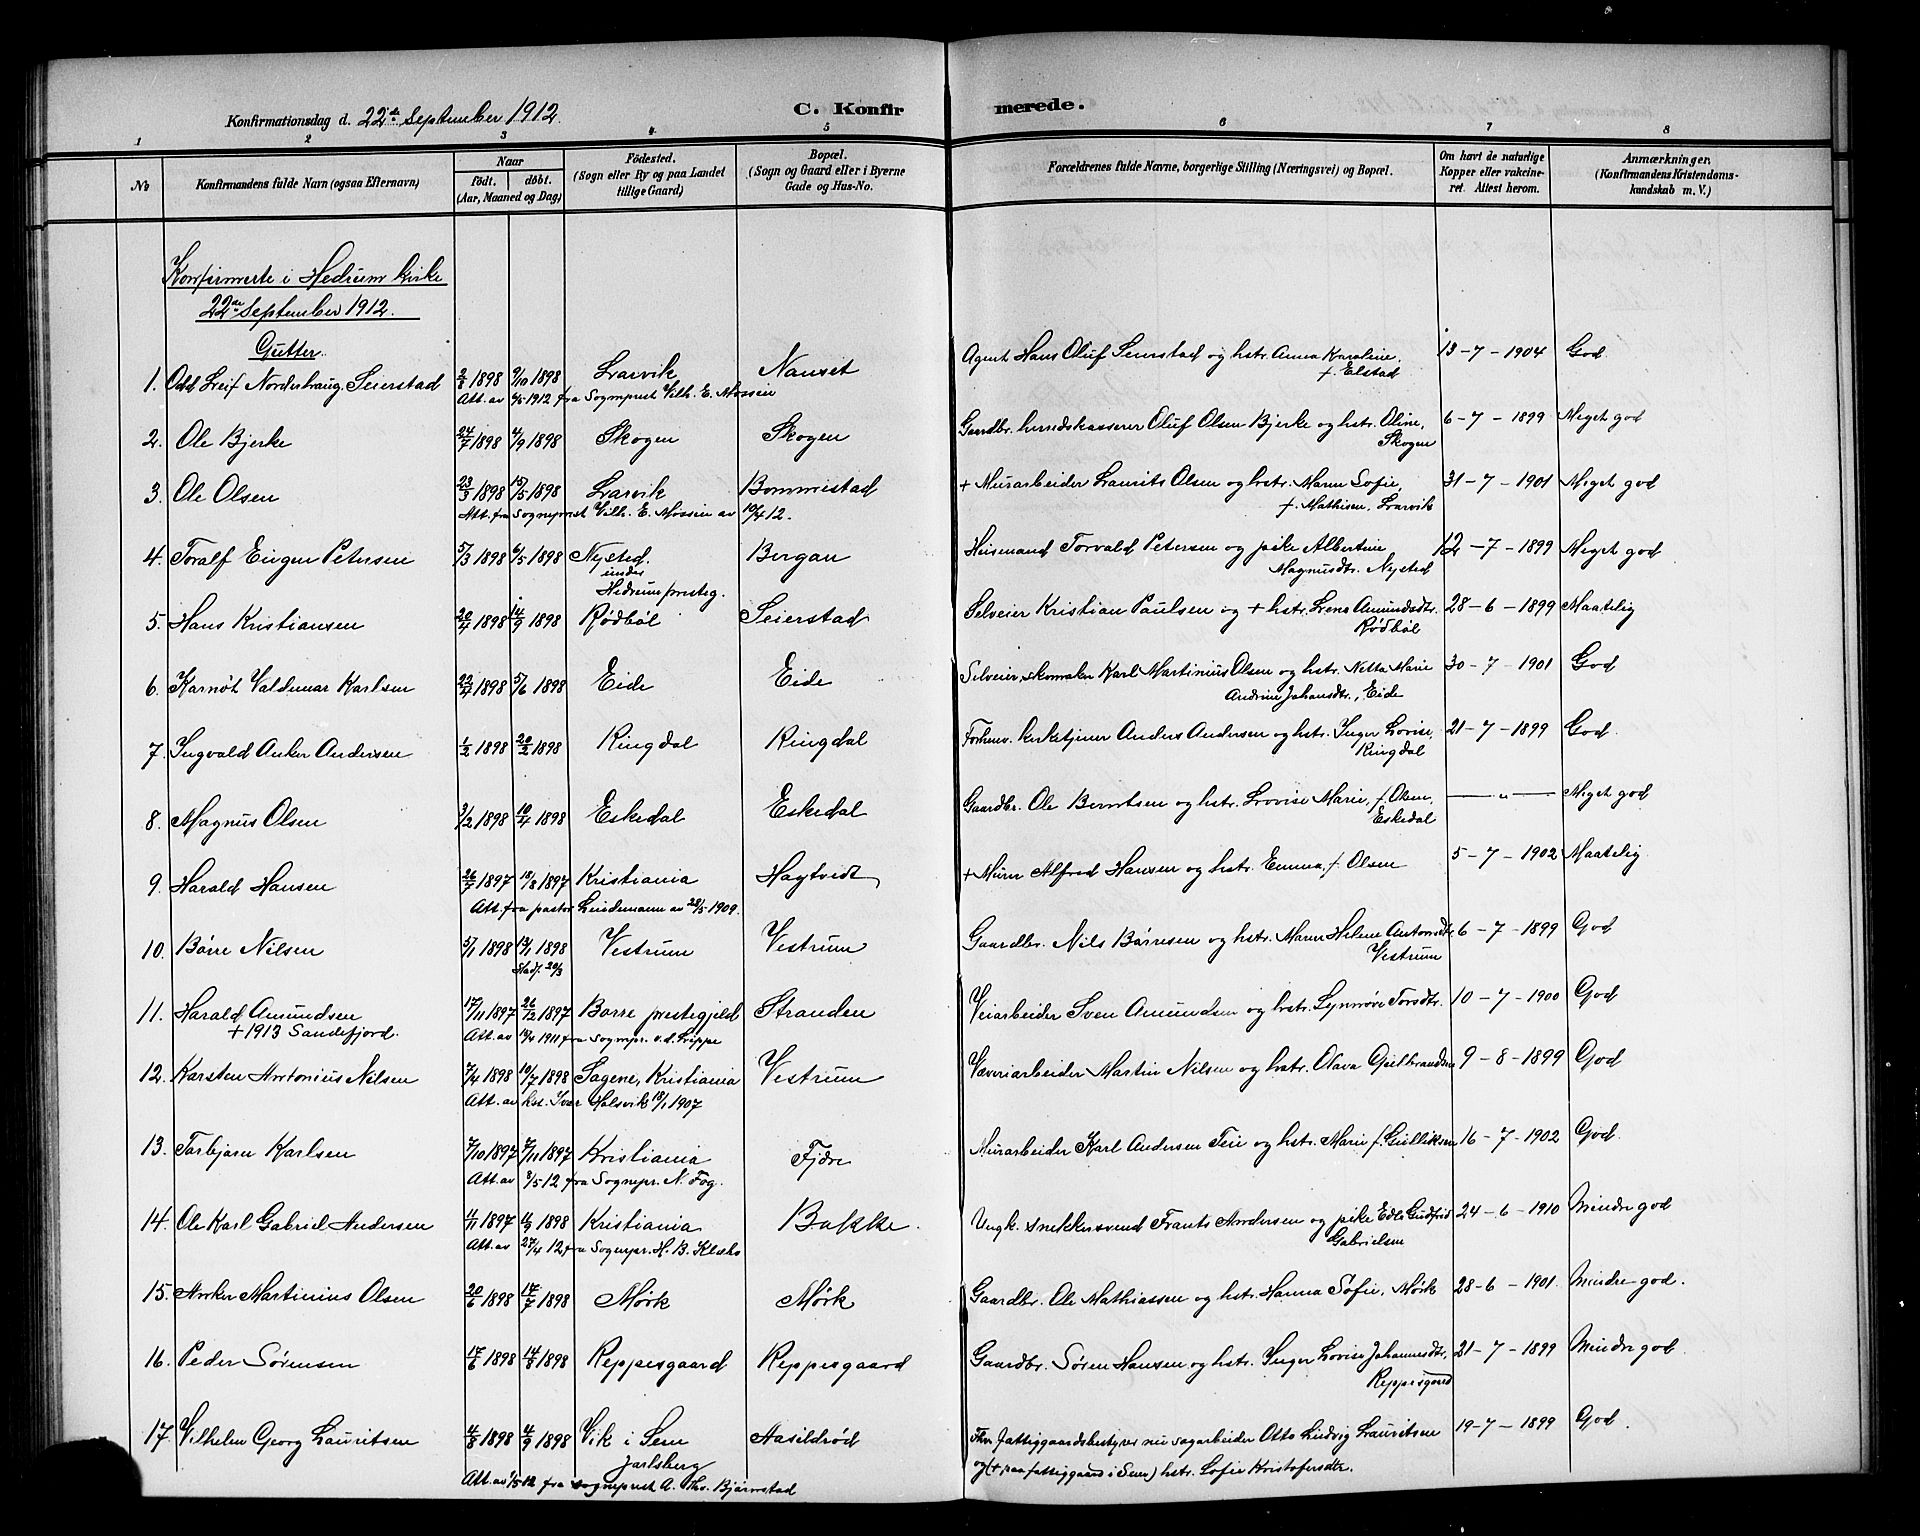 Konfirmationsdag d. 22de September 1912.
C. Konfirmerede.
1 2 3 4 5 6 7 8
No
Konfirmandens fulde Navn (ogsaa Efternavn)
Naar
födt. döbt.
(Aar, Maaned og Dag)
Födested.
(Sogn eller By og paa Landet
tillige Gaard)
Bopæl.
(Sogn og Gaard eller i Byerne
Gade og Hus-No.
Forældrenes fulde Navne, borgerlige Stilling (Næringsvei) og Bopæl.
Om havt de naturlige
Kopper eller vakcine-
ret. Attest herom.
Anmærkninger.
(Konfirmandens Kristendoms-
kundskab m. V.)
Konfirmerte i Hedrum kirke
22de September 1912.
Gutter.
1. Odd Leif Norderhaug Seierstad 2/8 1898 9/10 1898 Larvik Nanset Agent Hans Oluf Seierstad og hstr. Anna Karoline, 13-7-1904 God
f. Elstad
Att. av 4/5 1912 fra Sogneprest Vilh. E. Mossin
2. Ole Bjerke 24/7 1898 4/9 1898 Skogen Skogen Gaardbr. herredskasserer Oluf Olsen Bjerke og hstr. Oline, 6-7-1899 Meget god
Skogen
3. Ole Olsen 23/3 1898 15/5 1898 Larvik Bommestad + Murarbeider Laurits Olsen og hstr. Maren Sofie, 31-7-1901 Meget god
f. Mathisen, Larvik
Att. fra Sogneprest Vilh. E. Mossin av 19/4 12.
4. Toralf Eugen Petersen 5/3 1898 6/5 1898 Nysted. Bergan Husmand Torvald Petersen og pike Albertine 12-7-1899 Meget god
under Magnusdtr. Nysted
Hedrum presteg.
5. Hans Kristiansen 20/4 1898 14/9 1898 Rødbøl Seierstad Selveier Kristian Paulsen og + hstr. Lene Amundsdtr. 28-6-1899 Maatelig
Rødbøl
6. Karnøt Valdemar Karlsen 22/4 1898 5/6 1898 Eide Eide Selveier, skomaker Karl Martinius Olsen og hstr. Netta Marie 30-7-1901 God
Andrine Johansdtr., Eide
7. Ingvald Anker Andersen 1/2 1898 20/2 1898 Ringdal Ringdal Forhenv. kirketjener Anders Andersen og hstr. Inger Lovise, 21-7-1899 God
Ringdal
8. Magnus Olsen 3/2 1898 10/4 1898 Eskedal Eskedal Gaardbr. Ole Berntsen og hstr. Lovise Marie, f. Olsen, — " — Meget god
Eskedal
9. Harald Hansen 26/7 1897 18/8 1897 Kristiania Hagtvedt + Murer Alfred Hansen og hstr. Emma, f. Olsen 5-7-1902 Maatelig
Att. fra pastor Lindemann av 28/5 1909.
10. Børre Nilsen 5/1 1898 13/1 1898 Vestrum Vestrum Gaardbr. Nils Børresen og hstr. Maren Helene Antonsdtr. 6-7-1899 God
Stadf. 20/3 Vestrum
11. Harald Amundsen 17/11 1897 26/12 1897 Borre prestegjeld Stranden Veiarbeider Sven Amundsen og hstr. Synnøve Torsdtr. 10-7-1900 God
+ 1913 Sandefjord. Att. av 19/4 1911 fra Sognepr. v. d. Lippe
12. Karsten Antonius Nilsen 7/4 1898 10/7 1898 Sagene, Kristiania Vestrum Væveriarbeider Martin Nilsen og hstr. Olava Gulbrandsen 9-8-1899 God
Att. av kst. Ivar Holsvik 18/1 1907
13. Torbjørn Karlsen 7/10 1897 7/11 1897 Kristiania Fjære Murarbeider Karl Andersen Teie og hstr. Marie f. Gulliksen 16-7-1902 God.
Att. av 8/5 12 fra Sognepr. N. Fog.
14. Ole Karl Gabriel Andersen 11/11 1897 11/9 1898 Kristiania Bakke. Ungk. snekkersvend Frants Andersen og pike Edle Gudfrid 24-6-1910 Mindre god
Gabrielsen
Att. av 27/4 12 fra Sognepr. H. B. Kløebo
15. Anker Martinius Olsen 20/6 1898 17/7 1898 Mørk Mørk Gaardbr. Ole Mathiassen og hstr. Hanna Sofie, Mørk 28-6-1901. Mindre god.
16. Peder Sørensen 17/6 1898 14/8 1898 Reppesgaard Reppesgaard Gaardbr. Søren Hansen og hstr. Inger Lovise Johannesdtr, 21-7-1899 Mindre god.
Reppesgaard
17. Vilhelm Georg Lauritsen 4/8 1898 4/9 1898 Vik i Sem Aasildrød Fhv. fattiggaardsbestyrer nu sagarbeider Otto Ludvig Lauritsen 19-7-1899 God.
Jarlsberg og (+ paa fattiggaard i Sem) hstr. Sofie Kristofersdtr.
Att. av 1/5 12 fra sogneprest A. Thv. Bjørnstad